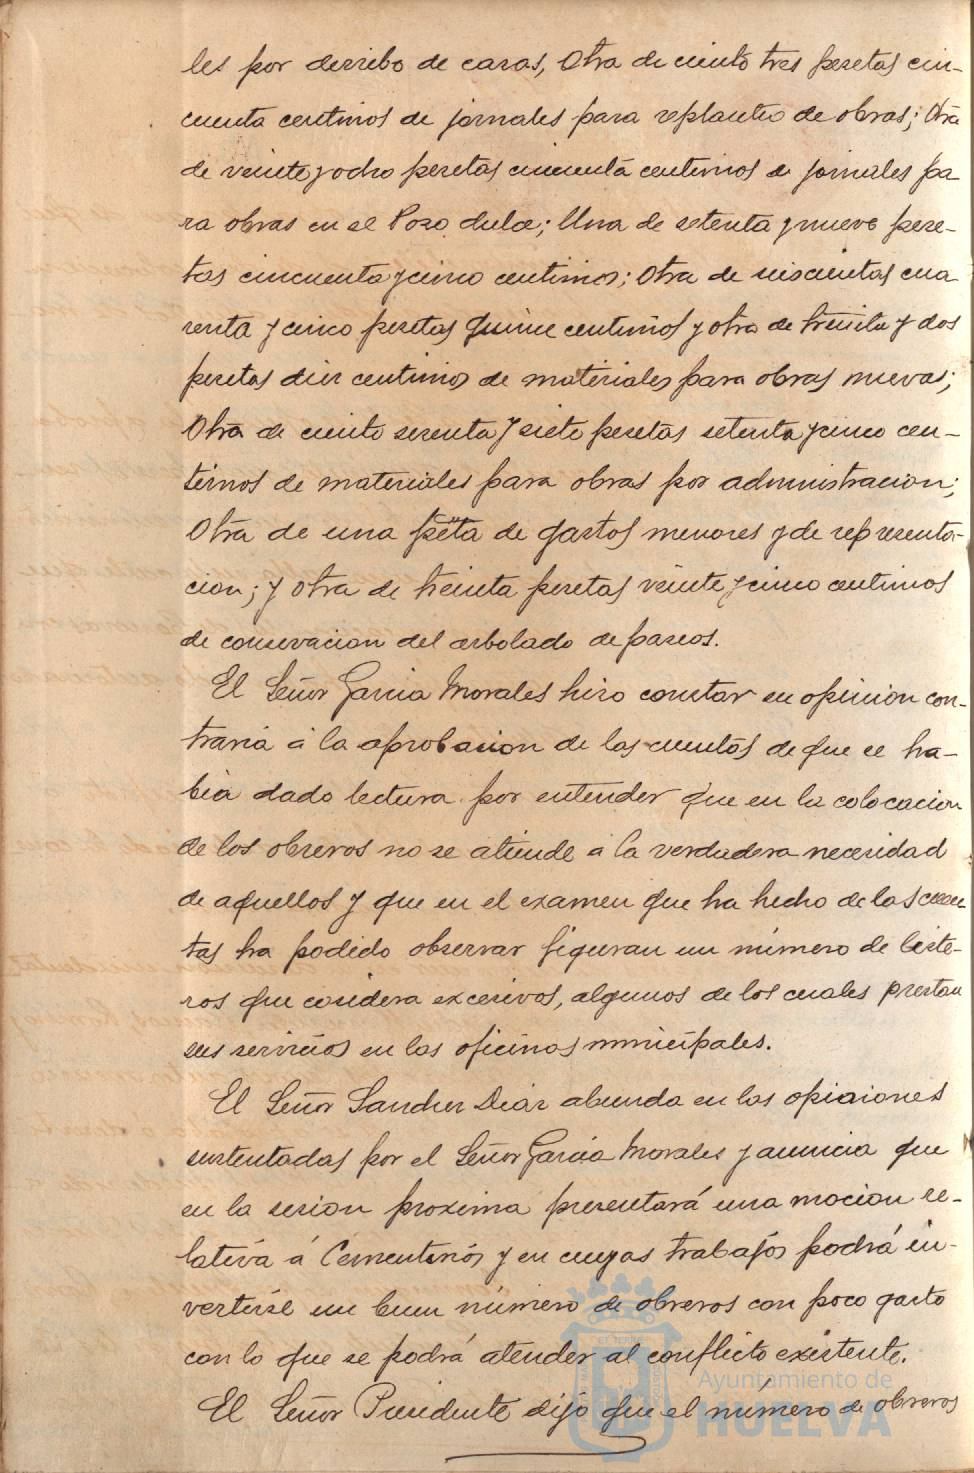 les por derribo de casas, Otra de ciento tres pesetas cin-
cuenta centimos de jornales para replanteo de obras; Otra
de veinte y ocho pesetas cincuenta centimos de jornales pa
ra obras en el Pozo dulce; Una de setenta y nueve pese-
tas cincuenta y cinco centimos; Otra de seiscientas cua
renta y cinco pesetas quince centimos y otra de treinta y dos
pesetas diez centimos de materiales para obras nuevas;
Otra de ciento sesenta y siete pesetas setenta y cinco cen-
timos de materiales para obras por administracion;
Otra de una peta de gastos menores y de representa-
cion; y otra de treinta pesetas veinte y cinco centimos
de conservacion del arbolado de paseos.
El Señor Garcia Morales hizo constar su opinion con-
traria á la aprobacion de las cuentas de que se ha-
bia dado lectura por entender que en la colocacion
de los obreros no se atiende a la verdadera necesidad
de aquellos y que en el examen que ha hecho de las cuen
tas ha podido observar figuran un número de liste-
ros que cosidera excesivos, algunos de los cuales prestan
sus servicios en las oficinas municipales.
El Señor Sanchez Diaz abunda en las opiniones
sustentadas por el Señor Garcia Morales y anuncia que
en la sesion proxima presentará una mocion re-
lativa á Cementerios y en cuyos trabajos podrá in-
vertirse un buen número de obreros con poco gasto
con lo que se podrá atender al conflicto existente.
El Señor Presidente dijo que el número de obreros
Ayuntamiento de
HUELVA